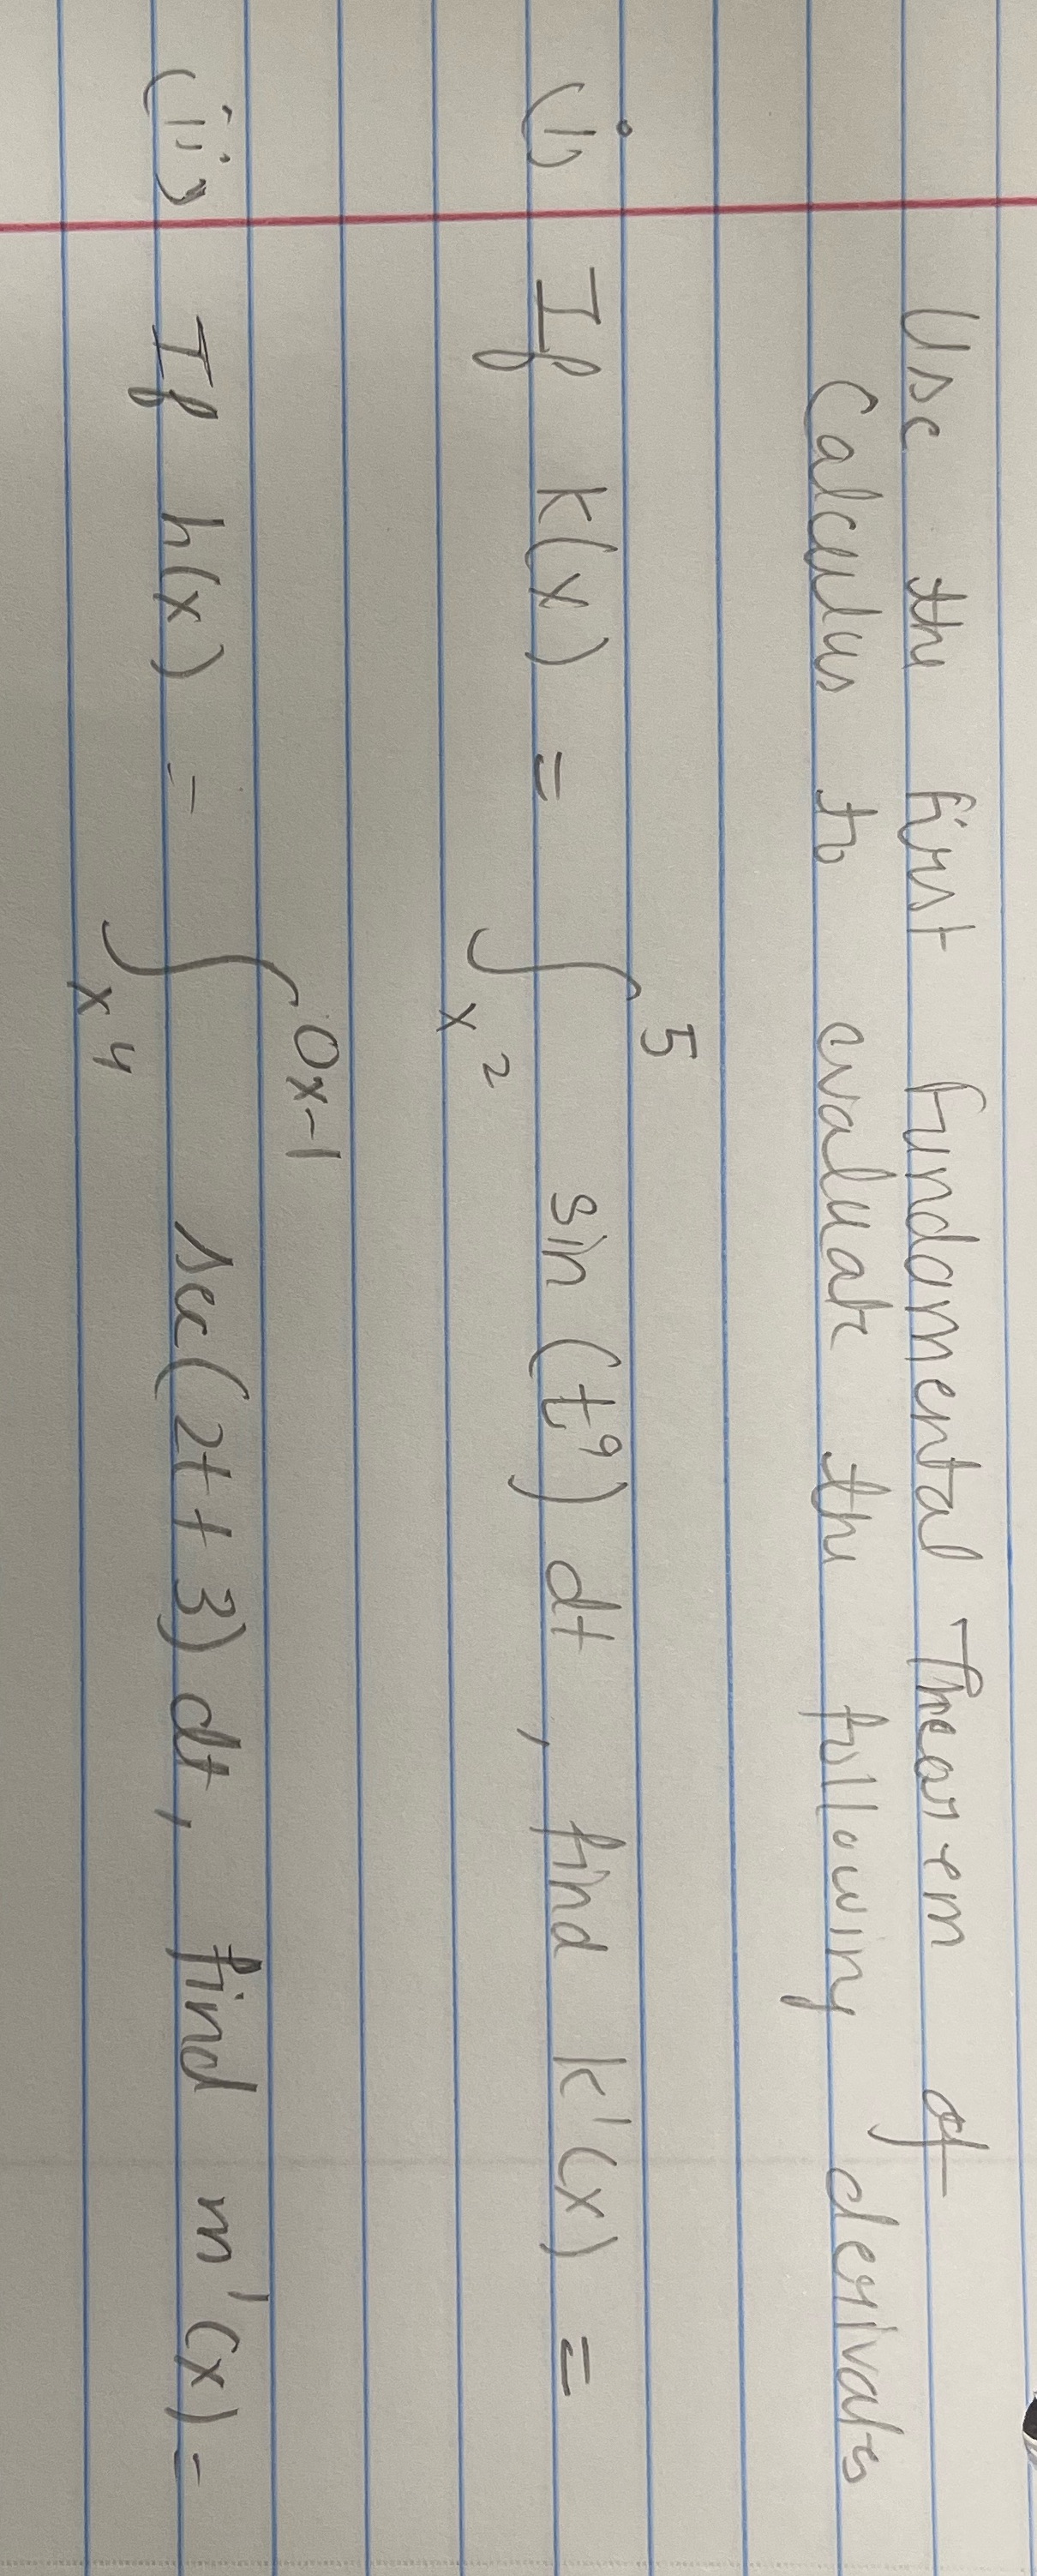 Use the first fundamental Thearem of
Calculus to evaluate the following derivates
(i) If k(x) = ∫_{x^2}^{5} sin (t^9) dt , find k'(x) =
(ii) If h(x) = ∫_{x^4}^{0x-1} sec(2t + 3) dt, find m'(x) =